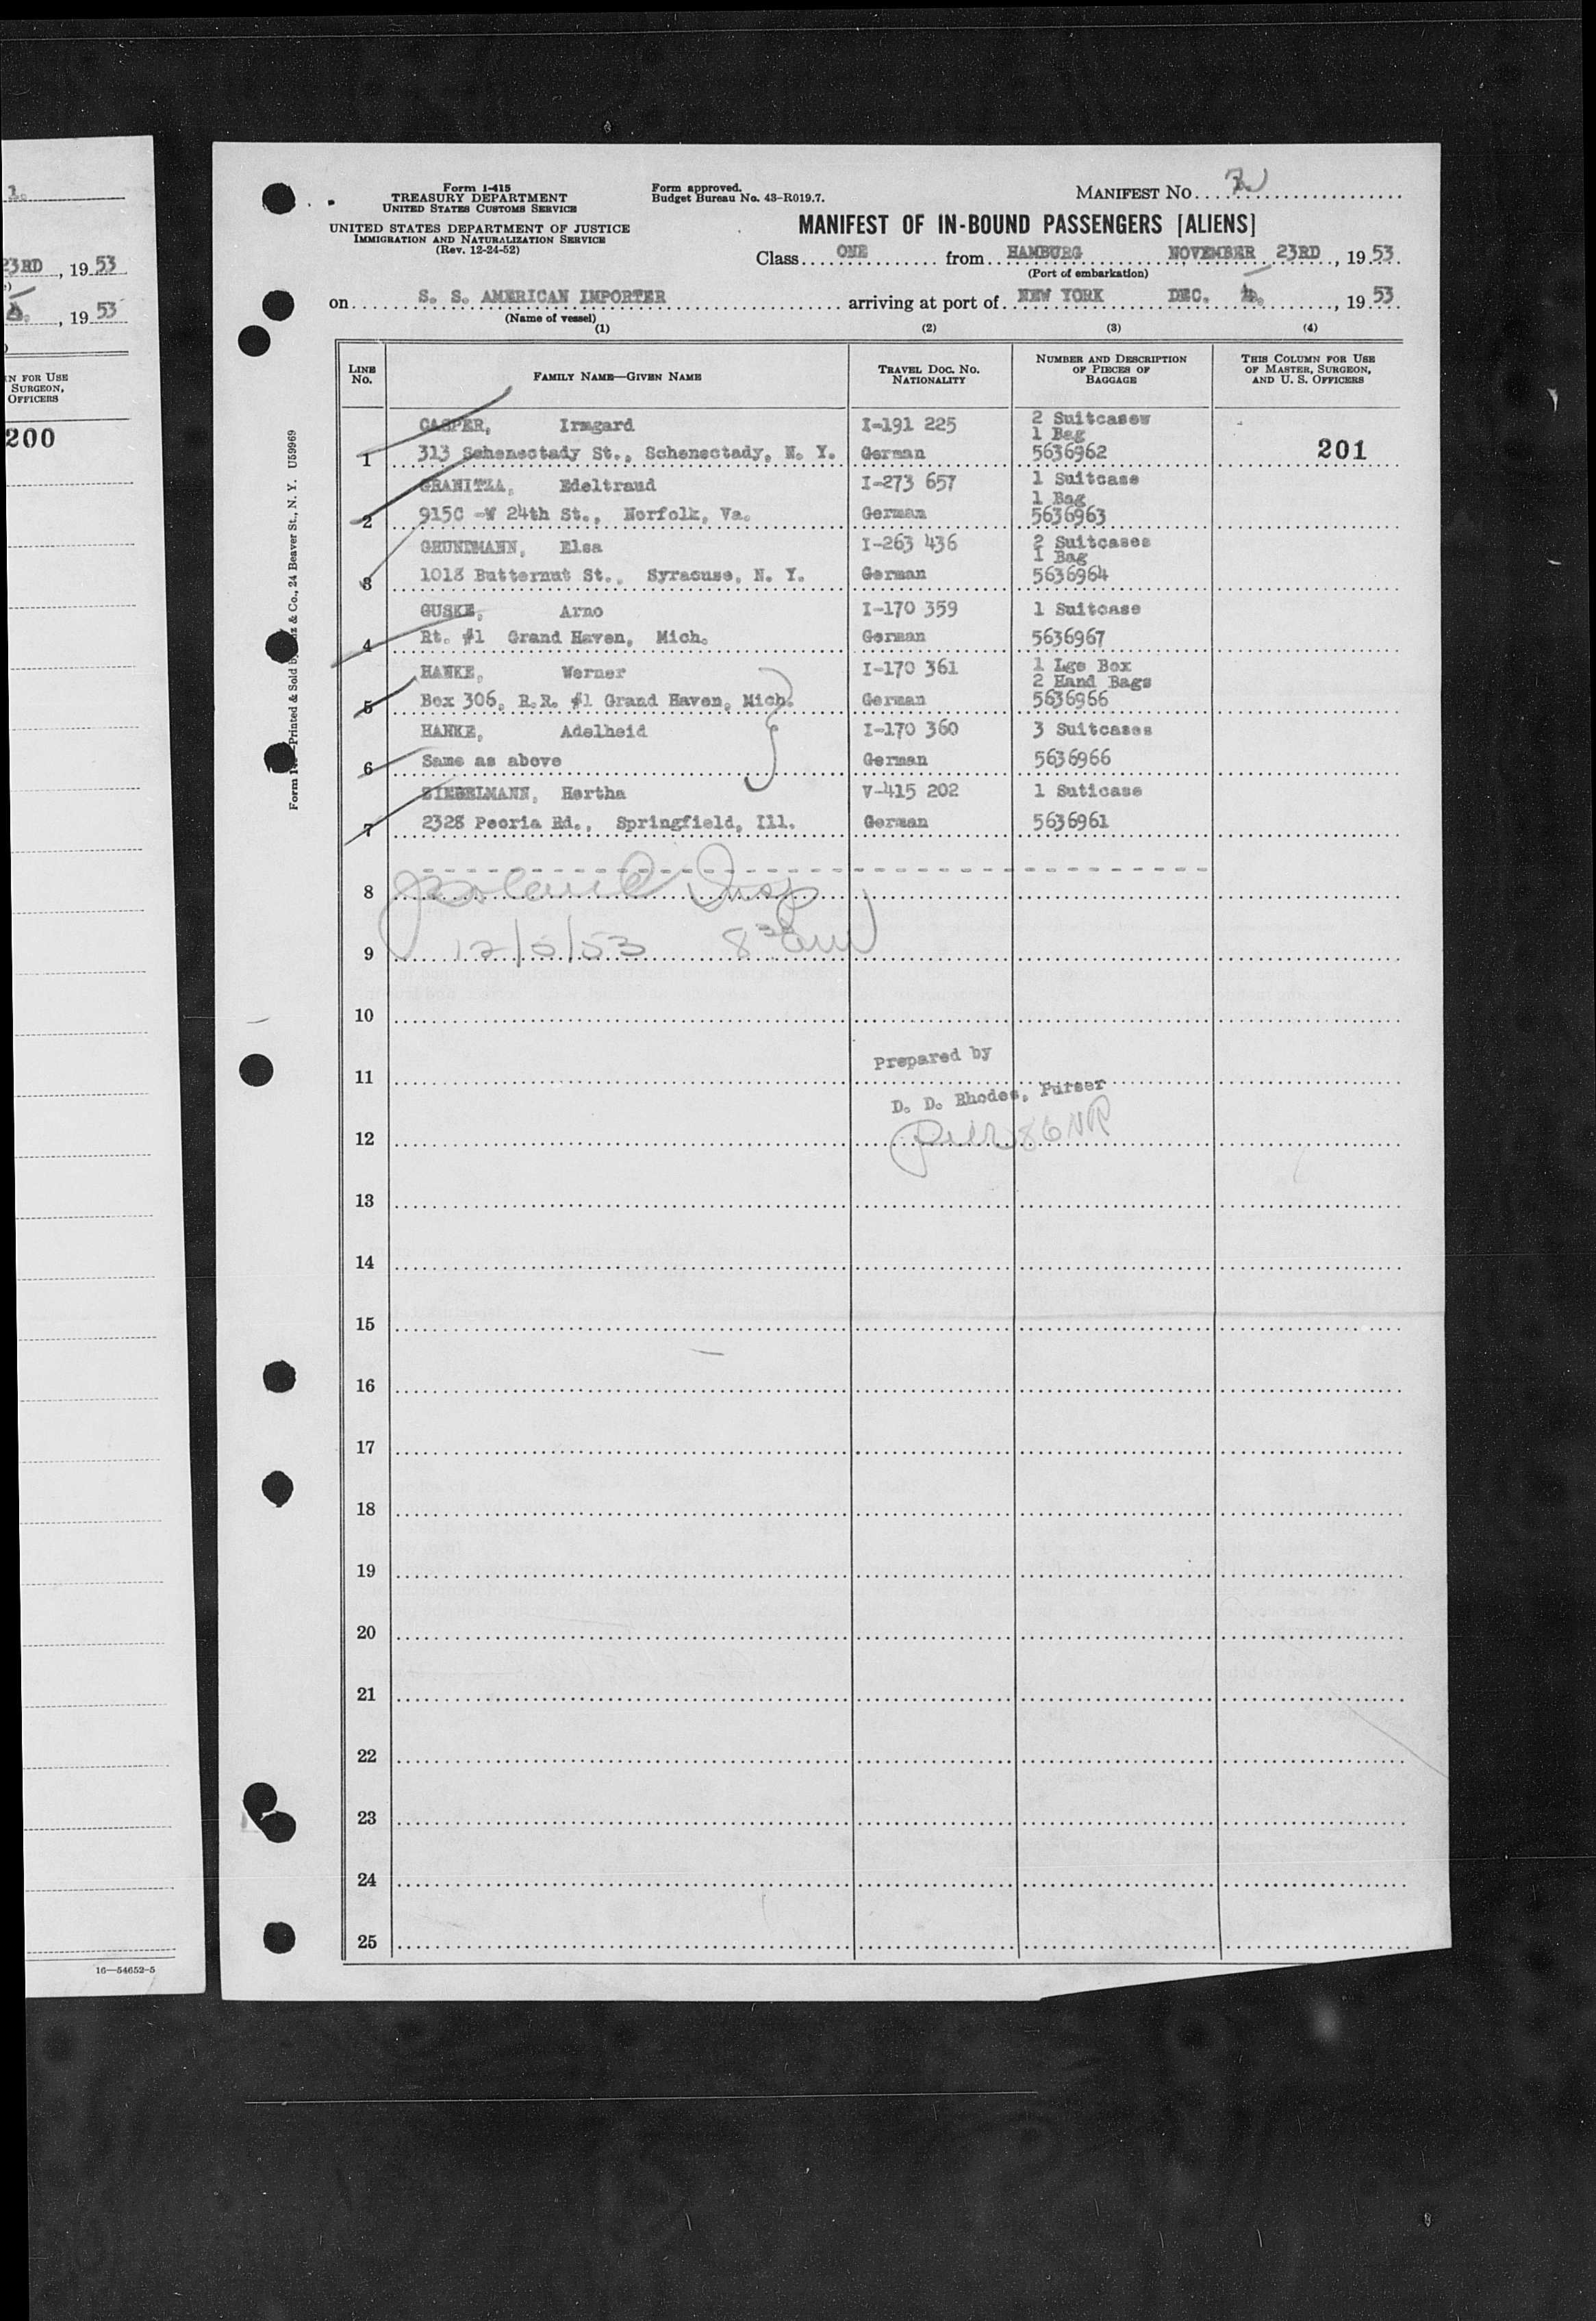 1.
23RD, 19 53
, 19 53
N FOR USE
SURGEON,
OFFICERS
200
16—54652-5
Form I-415
TREASURY DEPARTMENT
UNITED STATES CUSTOMS SERVICE
UNITED STATES DEPARTMENT OF JUSTICE
IMMIGRATION AND NATURALIZATION SERVICE
(Rev. 12-24-52)
Form approved.
Budget Bureau No. 43-R019.7.
MANIFEST NO.
MANIFEST OF IN-BOUND PASSENGERS [ALIENS]
Class ONE from HAMBURG NOVEMBER 23RD, 19 53
(Port of embarkation)
on S. S. AMERICAN IMPORTER arriving at port of NEW YORK DEC. , 19 53
(Name of vessel)
(1) (2) (3) (4)
LINE NO. FAMILY NAME—GIVEN NAME TRAVEL DOC. NO. NATIONALITY NUMBER AND DESCRIPTION OF PIECES OF BAGGAGE THIS COLUMN FOR USE OF MASTER, SURGEON, AND U. S. OFFICERS
CASPER, Irmgard I-191 225 2 Suitcasew
1 Bag
1 313 Schenectady St., Schenectady, N. Y. German 5636962 201
GRANITZA, Edeltraud I-273 657 1 Suitcase
1 Bag
2 915C -W 24th St., Norfolk, Va. German 5636963
GRUNEMANN, Elsa I-263 436 2 Suitcases
1 Bag
3 1018 Butternut St., Syracuse, N. Y. German 5636964
GUSKE, Arno I-170 359 1 Suitcase
4 Rt. #1 Grand Haven, Mich. German 5636967
HANKE, Werner I-170 361 1 Lge Box
2 Hand Bags
5 Box 306, R.R. #1 Grand Haven, Mich. German 5636966
HANKE, Adelheid I-170 360 3 Suitcases
6 Same as above German 5636966
ZIEGELMANN, Hertha V-415 202 1 Suticase
7 2328 Peoria Rd., Springfield, Ill. German 5636961
8 Insp
9 12/5/53 8 30 am
10
Prepared by
11
D. D. Rhodes, Purser
12 Pier 86 NR
13
14
15
16
17
18
19
20
21
22
23
24
25
Printed & Sold by & Co., 24 Beaver St., N. Y. U59969